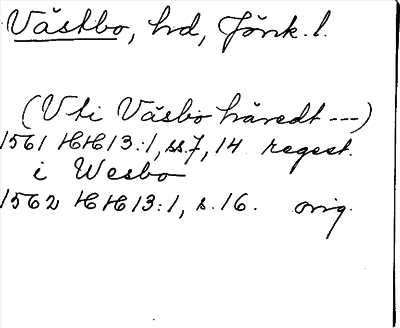 Västbo, hrd, Jönk.l.
(Uti Väsbo häredt ---)
1561 HH 13:1, ss.7, 14 regest.
i Wesbo
1562 HH 13:1, s.16. orig.